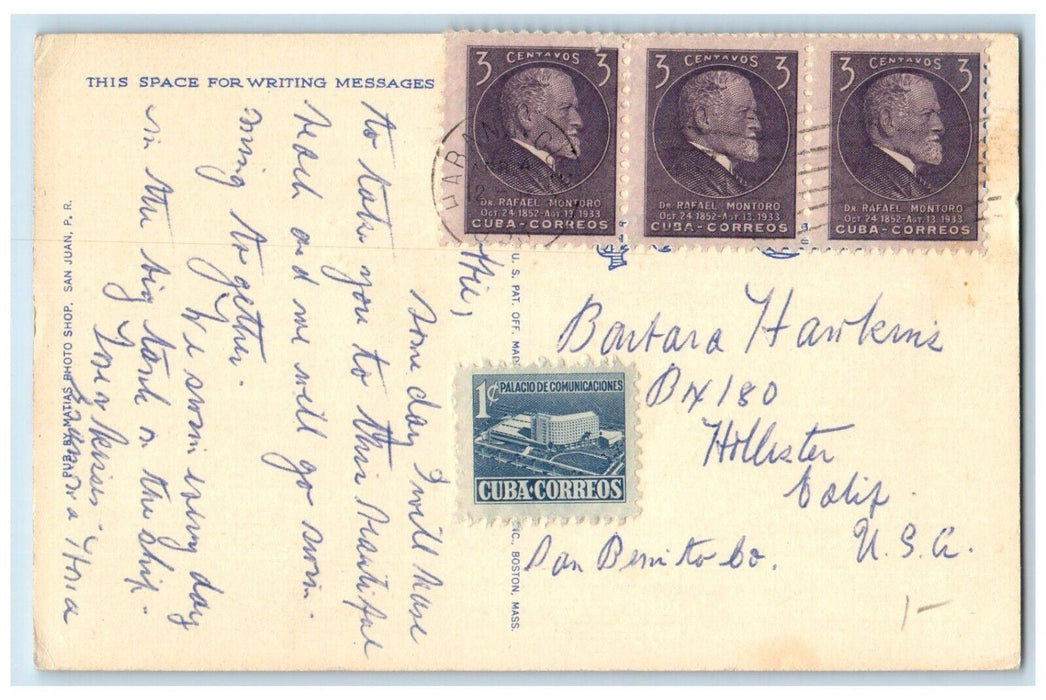 THIS SPACE FOR WRITING MESSAGES
Hi,
Some day I will have
to take you to this beautiful
beach and we will go swim-
ming together.
We swim every day
in the big tank on the ship.
Love & kisses
Grandma
PUB. BY MATIAS PHOTO SHOP, SAN JUAN, P. R.
U. S. PAT. OFF.
INC., BOSTON, MASS.
3 CENTAVOS 3
DR. RAFAEL MONTORO
OCT 24 1852-AGT. 13, 1933
CUBA-CORREOS
3 CENTAVOS 3
DR. RAFAEL MONTORO
OCT 24 1852-AGT. 13, 1933
CUBA-CORREOS
3 CENTAVOS 3
DR. RAFAEL MONTORO
OCT 24 1852-AGT. 13, 1933
CUBA-CORREOS
HABANA
1¢ PALACIO DE COMUNICACIONES
CUBA·CORREOS
Barbara Hawkins
BX 180
Hollister
Calif.
San Benito Co. U. S. A.
1-